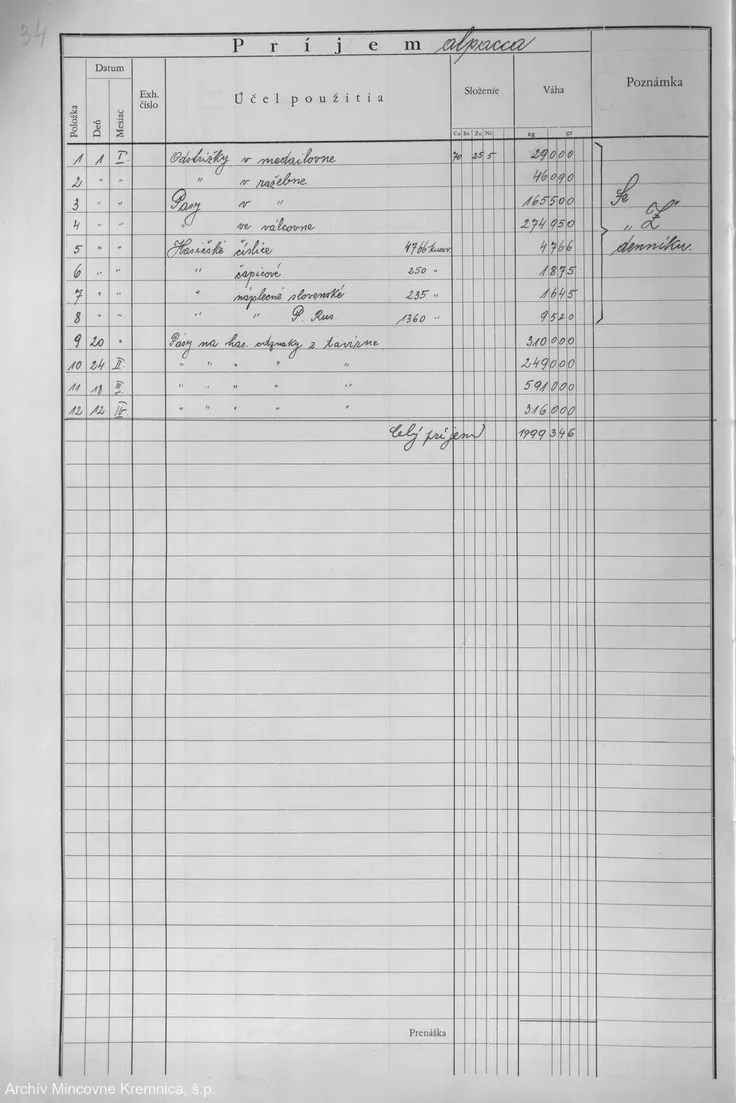 34
Príjem alpacca
Položka Datum Deň Mesiac Exh. číslo Účel použitia Složenie Váha Poznámka
Cu Sn Zn Ni kg gr
1 1 I. Odstrižky v medailovne 70 25 5 29000
2 " " " vražebne 46090
3 " " Pasy v " 165500 Se
4 " " " ve válcovne 274950 „Z"
5 " " Hasičské číslice 4766 kusov 4766 denníku.
6 " " " čapicové 250 " 1875
7 " " " náplecné slovenské 235 " 1645
8 " " " " P. Rus. 1360 " 9520
9 20 " Pásy na has. odznaky z tavirne 310000
10 24 II. " " " " " 249000
11 18 III. " " " " " 591000
12 12 IV. " " " " " 316000
Celý príjem 1999346
Prenáška
Archív Mincovne Kremnica, š.p.